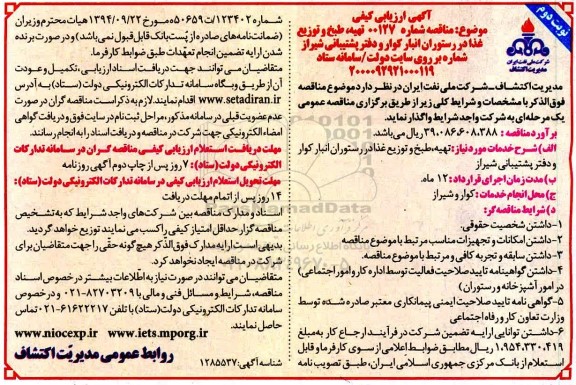 نوبت دوم
شرکت ملی نفت ایران
مدیریت اکتشاف
آگهی ارزیابی کیفی
موضوع: مناقصه شماره ۰۰۱۲۷ تهیه، طبخ و توزیع
غذا در رستوران انبار کوار و دفتر پشتیبانی شیراز
شماره بر روی سایت دولت / سامانه ستاد
۲۰۰۰۰۹۲۹۲۱۰۰۰۱۱۹
مدیریت اکتشاف ـ شرکت ملی نفت ایران در نظر دارد موضوع مناقصه
فوق‌الذکر با مشخصات و شرایط کلی زیر از طریق برگزاری مناقصه عمومی
یک مرحله‌ای به شرکت واجد شرایط واگذار نماید.
برآورد مناقصه : ۳۹,۰۸۶,۶۰۸,۳۸۸ ریال می‌باشد.
الف) شرح خدمات مورد نیاز: تهیه، طبخ و توزیع غذا در رستوران انبار کوار
و دفتر پشتیبانی شیراز
ب) مدت زمان اجرای قرارداد: ۱۲ ماه.
ج) محل انجام خدمات: کوار و شیراز
د) شرایط مناقصه‌گر:
۱-داشتن شخصیت حقوقی.
۲-داشتن امکانات و تجهیزات مناسب مرتبط با موضوع مناقصه
۳-داشتن سابقه و تجربه کافی و مرتبط با موضوع مناقصه.
۴-داشتن گواهینامه تایید صلاحیت فعالیت توسط اداره کار و امور اجتماعی)
در امور آشپزخانه و رستوران)
۵-گواهی نامه تایید صلاحیت ایمنی پیمانکاری معتبر صادره شده توسط
وزارت تعاون کار و رفاه اجتماعی
۶-داشتن توانایی ارایه تضمین شرکت در فرآیند ارجاع کار به مبلغ
۱,۹۵۴,۳۳۰,۴۱۹ ریال مطابق ضوابط اعلامی از سوی کارفرما و قابل
استعلام از بانک مرکزی جمهوری اسلامی ایران، طبق تصویب نامه
شماره ۱۲۳۴۰۲/ت۵۰۶۵۹ه مورخ ۱۳۹۴/۰۹/۲۲ هیات محترم وزیران
(ضمانت‌نامه‌های صادره از پست بانک قابل قبول نمی‌باشد) و در صورت برنده
شدن ارایه تضمین انجام تعهدات طبق ضوابط کارفرما.
متقاضیان می‌توانند جهت دریافت اسناد ارزیابی، تکمیل و عودت
آن از طریق وبگاه سامانه تدارکات الکترونیکی دولت (ستاد) به آدرس
www.setadiran.ir اقدام نمایند. لازم به ذکر است مناقصه گران در صورت
عدم عضویت قبلی در سامانه مذکور، مراحل ثبت نام در سایت فوق و دریافت گواهی
امضاء الکترونیکی جهت شرکت در مناقصه و دریافت اسناد را به انجام رسانند.
مهلت دریافت استعلام ارزیابی کیفی مناقصه گران در سامانه تدارکات
الکترونیکی دولت (ستاد): ۷ روز پس از چاپ دوم آگهی روزنامه
مهلت تحویل استعلام ارزیابی کیفی در سامانه تدارکات الکترونیکی دولت (ستاد):
۱۴ روز پس از اتمام مهلت دریافت
اسناد و مدارک مناقصه بین شرکت‌های واجد شرایط که به تشخیص
مناقصه گزار حداقل امتیاز کیفی را کسب می نمایند توزیع خواهد گردید.
بدیهی است ارایه مدارک فوق الذکر هیچ گونه حقی را جهت متقاضیان برای
شرکت در مناقصه ایجاد نخواهد کرد.
متقاضیان می‌توانند در صورت نیاز به اطلاعات بیشتر در خصوص اسناد
مناقصه، شرایط و مسائل فنی و مالی با ۸۲۷۰۳۲۰۹-۰۲۱ و در خصوص
سامانه تدارکات الکترونیکی دولت (ستاد) با تلفن ۶۱۶۲۲۲۱۷-۰۲۱ تماس
حاصل نمایند.
www.niocexp.ir www.iets.mporg.ir
شناسه آگهی: ۱۲۸۵۵۳۷
روابط عمومی مدیریت اکتشاف